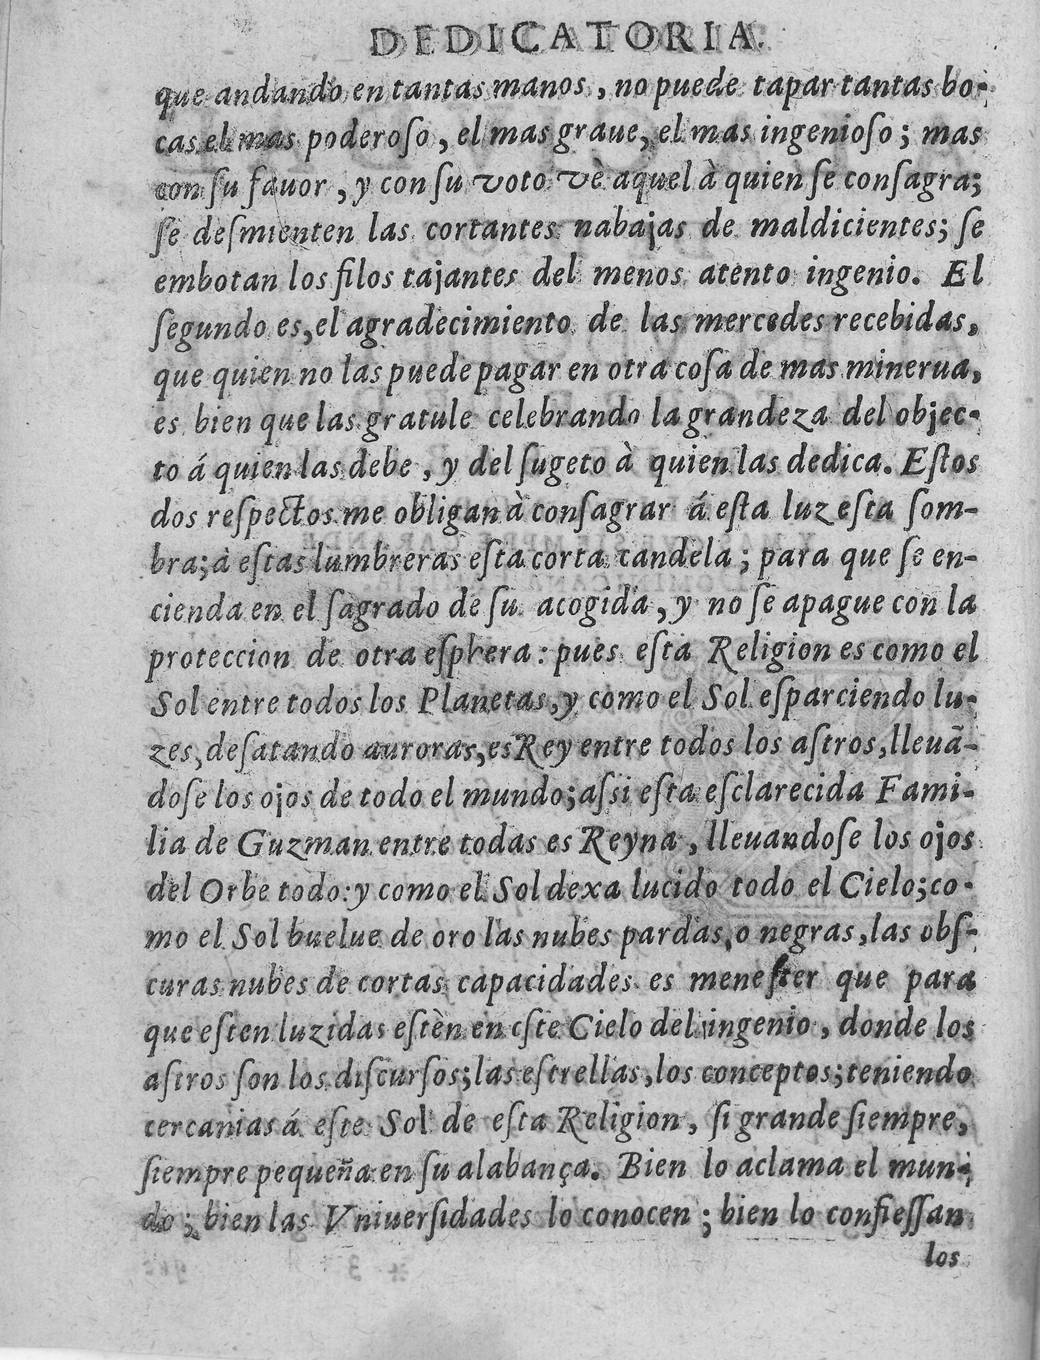 DEDICATORIA.
que andando en tantas manos, no puede tapar tantas bo-
cas el mas poderoſo, el mas graue, el mas ingenioſo; mas
con ſu fauor, y con ſu voto vè aquel à quien ſe conſagra;
ſe deſmienten las cortantes nabajas de maldicientes; ſe
embotan los filos tajantes del menos atento ingenio. El
ſegundo es, el agradecimiento de las mercedes recebidas,
que quien no las puede pagar en otra coſa de mas minerua,
es bien que las gratule celebrando la grandeza del objec-
to á quien las debe, y del ſugeto à quien las dedica. Eſtos
dos reſpectos me obligan à conſagrar á eſta luz eſta ſom-
bra; à eſtas lumbreras eſta corta candela; para que ſe en-
cienda en el ſagrado de ſu acogida, y no ſe apague con la
proteccion de otra eſphera: pues eſta Religion es como el
Sol entre todos los Planetas, y como el Sol eſparciendo lu-
zes, deſatando auroras, es Rey entre todos los aſtros, lleuã-
doſe los ojos de todo el mundo; aſsi eſta eſclarecida Fami-
lia de Guzman entre todas es Reyna, lleuandoſe los ojos
del Orbe todo: y como el Sol dexa lucido todo el Cielo; co-
mo el Sol buelue de oro las nubes pardas, o negras, las obſ-
curas nubes de cortas capacidades es meneſter que para
que eſten luzidas eſtèn en eſte Cielo del ingenio, donde los
aſtros ſon los diſcurſos; las eſtrellas, los conceptos; teniendo
cercanias á eſte Sol de eſta Religion, ſi grande ſiempre,
ſiempre pequeña en ſu alabança. Bien lo aclama el mun-
do; bien las Vniuerſidades lo conocen; bien lo confieſſan
los